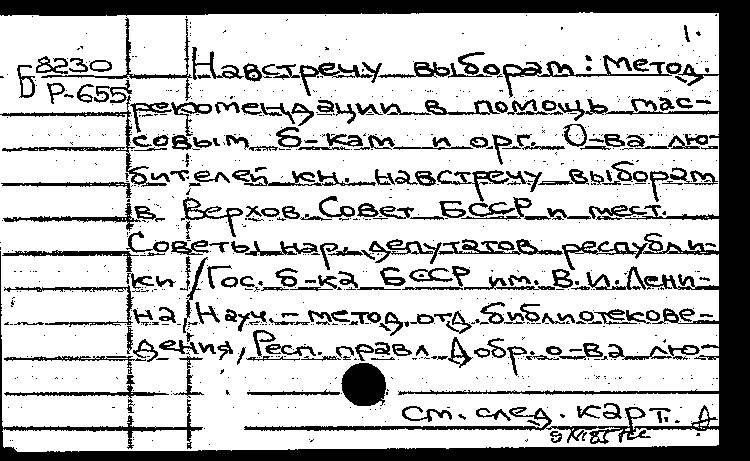 1.
Б 8230
Р-655
Навстречу выборам: Метод.
рекомендации в помощь мас-
совым б-кам и орг. О-ва лю-
бителей кн. навстречу выборам
в Верхов. Совет БССР и мест.
Советы нар. депутатов республи-
ки / Гос. б-ка БССР им. В.И. Лени-
на, Науч.-метод. отд. библиотекове-
дения, Респ. правл. Добр. о-ва лю-
см. след. карт.